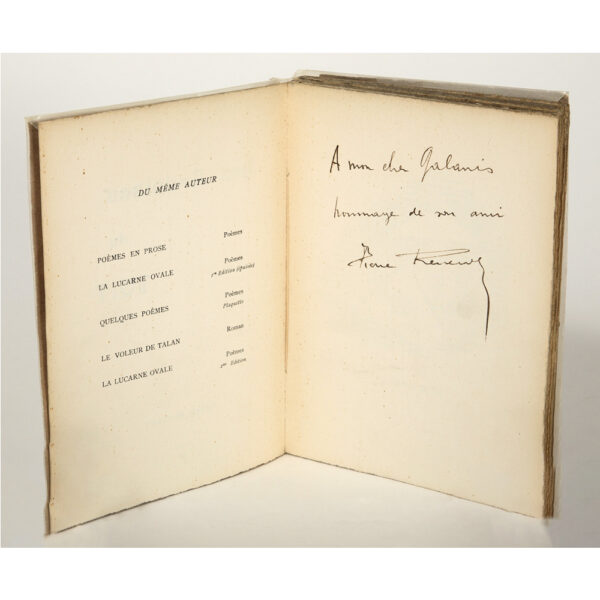 DU MÊME AUTEUR
POÈMES EN PROSE Poèmes
LA LUCARNE OVALE Poèmes
1re Edition (épuisée)
QUELQUES POÈMES Poèmes
Plaquette
LE VOLEUR DE TALAN Roman
LA LUCARNE OVALE Poèmes
2me Edition
A mon cher Galanis
hommage de son ami
Pierre Reverdy